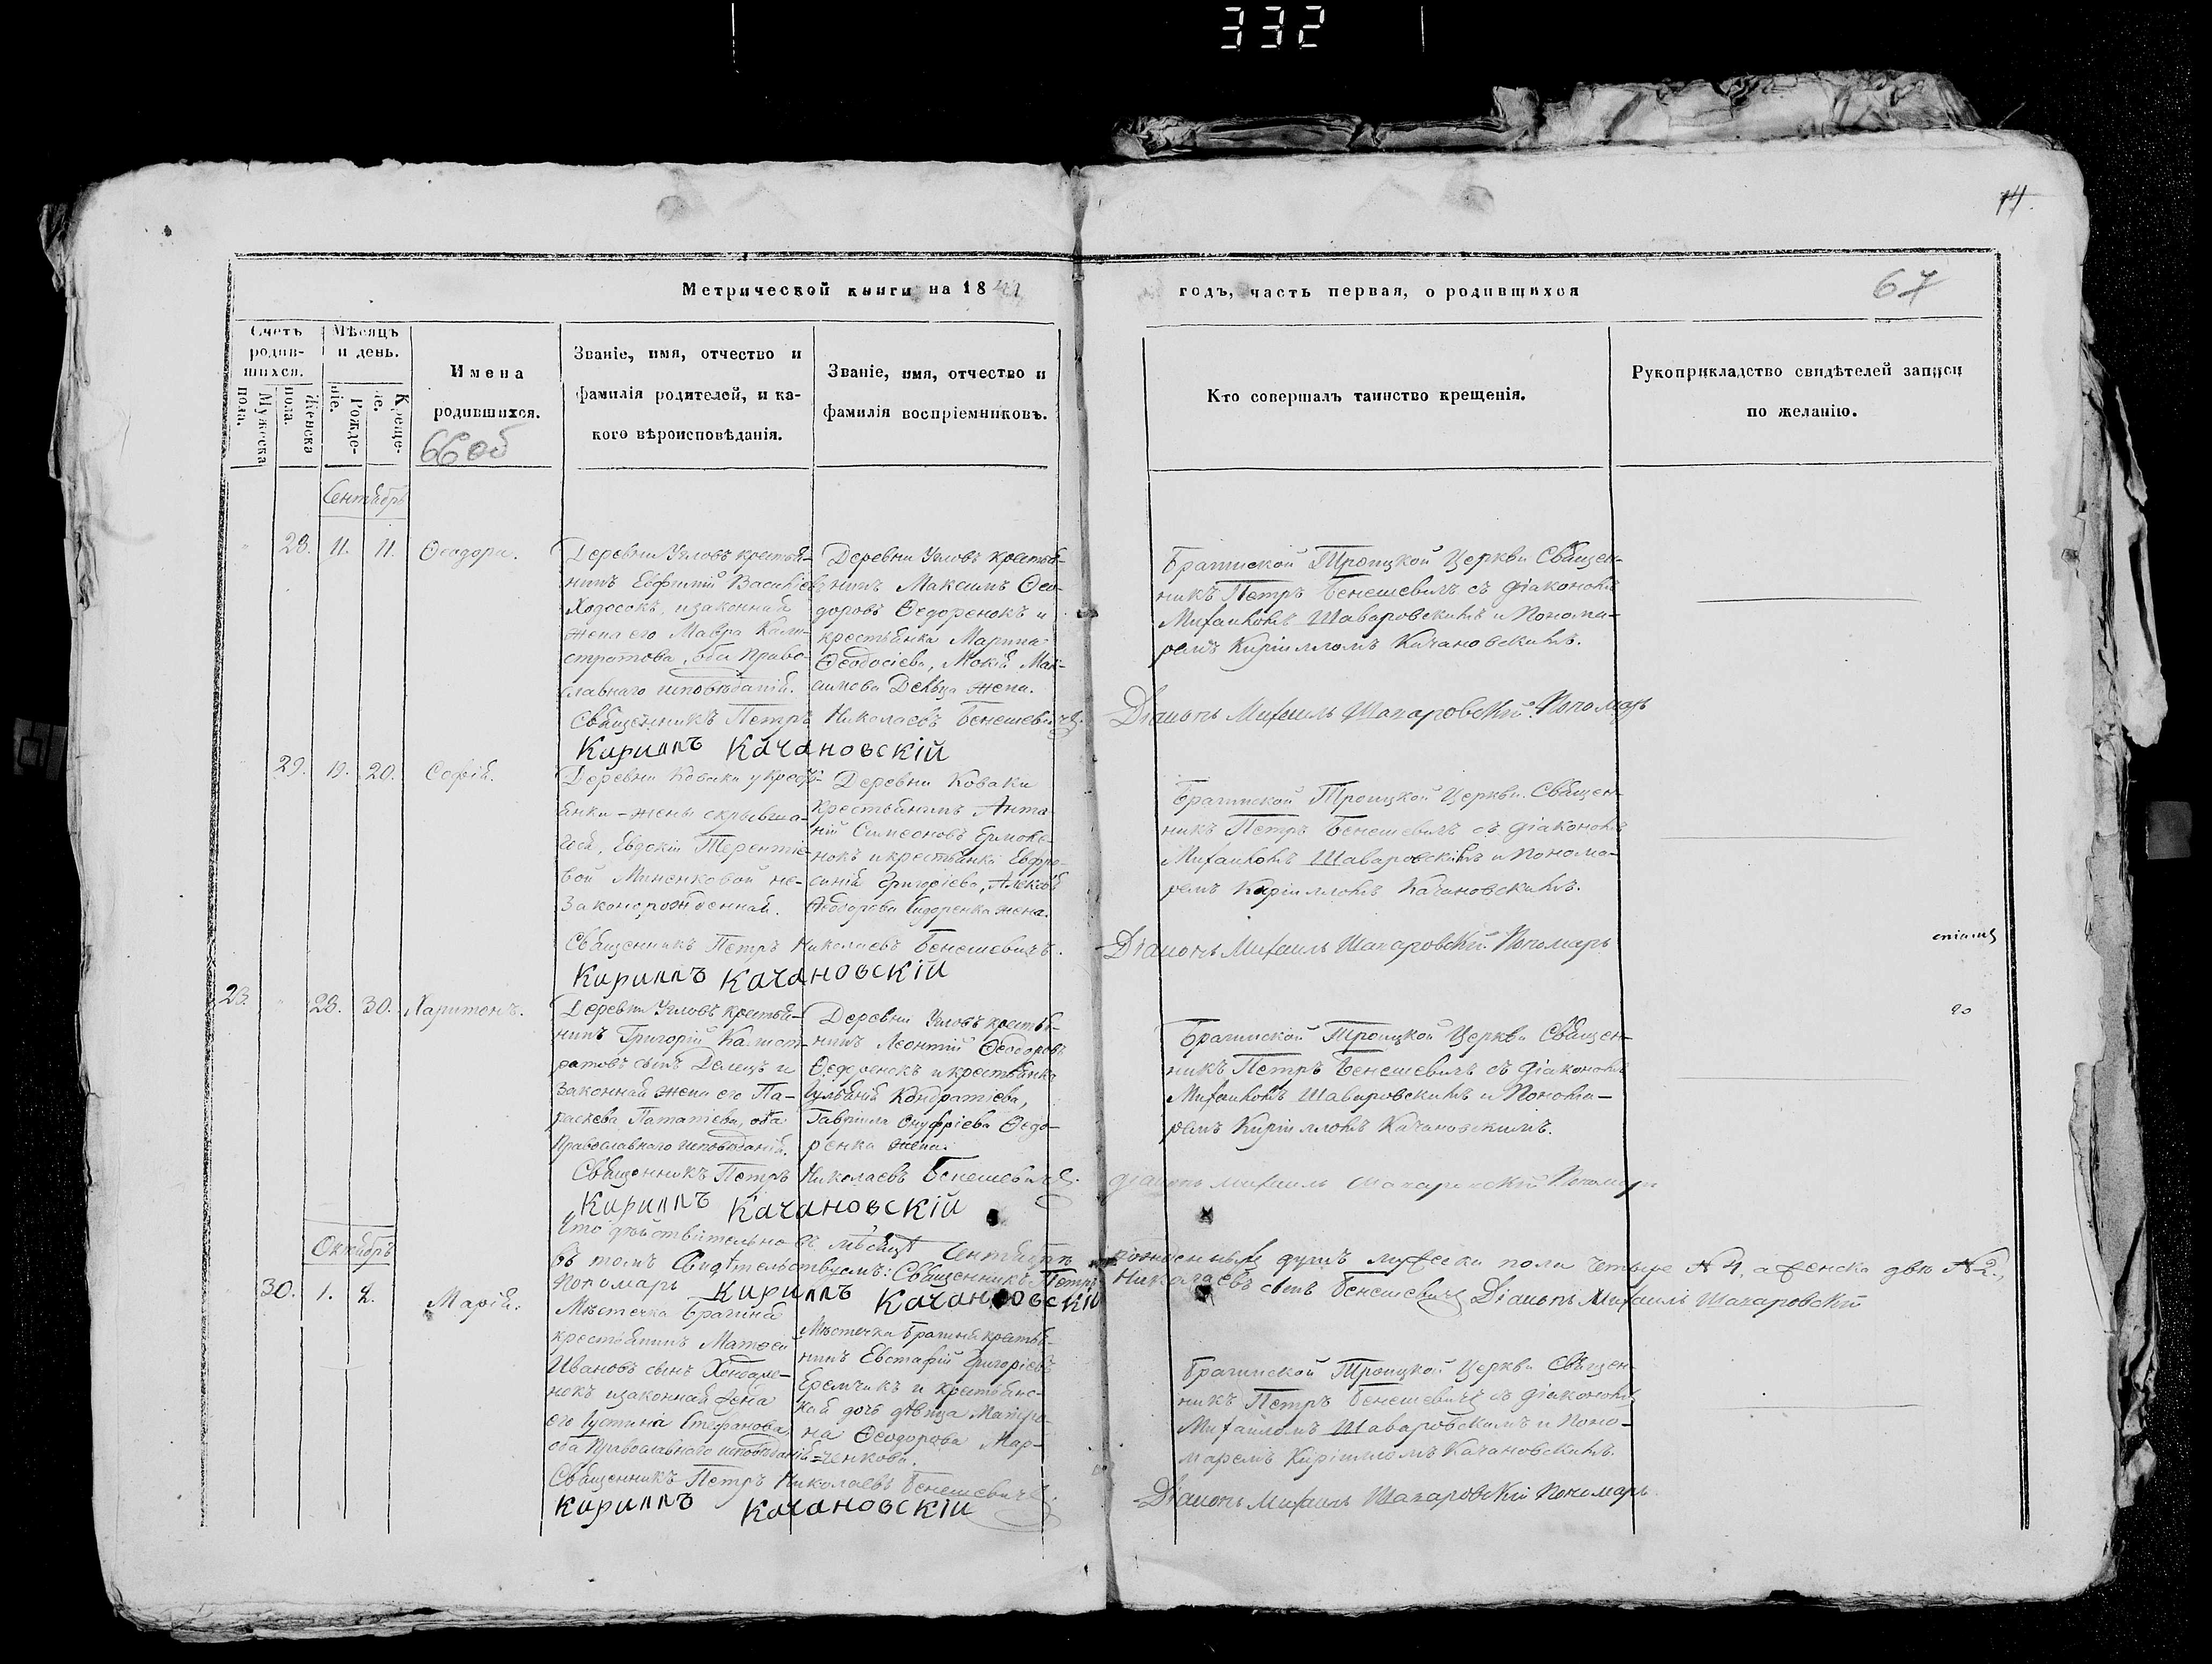 332
14.
Метрической книги на 1841
годъ, часть первая, о родившихся
67
Счетъ родив-шихся.
Мужеска пола.
Женска пола.
Мѣсяцъ и день.
Рожде-ніе.
Креще-ніе.
Имена
родившихся.
66 об
Званіе, имя, отчество и
фамилія родителей, и ка-
кого вѣроисповѣданія.
Званіе, имя, отчество и
фамилія воспріемниковъ.
Кто совершалъ таинство крещенія.
Рукоприкладство свидѣтелей записи
по желанію.
Сентябрь
28. 11. 11. Ѳеодора.
Деревни Угловъ крестья-
нинъ Евфимій Васильевъ
Ходосокъ, и законная
жена его Мавра Кали-
стратова, оба Право-
славнаго исповѣданія.
Деревни Угловъ крестья-
нинъ Максимъ Ѳео-
доровъ Ѳедоренокъ и
крестьянка Марина
Ѳеодосіева, Мокія Мак-
симова Дельца жена.
Брагинской Троицкой Церкви Священ-
никъ Петръ Бенешевичъ съ діакономъ
Михаиломъ Шаваровскимъ и Понома-
ремъ Кирилломъ Качановскимъ.
Священникъ Петръ Николаевъ Бенешевичъ.
Діаконъ Михаилъ Шаваровскій. Пономарь
Кириллъ Качановскій
29. 19. 20. Софія.
Деревни Коваки у кресть-
янки – жены скрывша-
гося, Евдокіи Терентіе-
вой Миненковой не-
законорожденная.
Деревни Коваки
крестьянинъ Анто-
ній Симеоновъ Ермоле-
нокъ и крестьянка Евфро-
синія Григоріева, Алексѣя
Ѳеодорова Сидоренка жена.
Брагинской Троицкой Церкви Священ-
никъ Петръ Бенешевичъ съ діакономъ
Михаиломъ Шаваровскимъ и Понома-
ремъ Кирилломъ Качановскимъ.
Священникъ Петръ Николаевъ Бенешевичъ.
Діаконъ Михаилъ Шаваровскій Пономарь
Кириллъ Качановскій
23. 28. 30. Харитонъ.
Деревни Угловъ крестья-
нинъ Григорій Калист-
ратовъ сынъ Делецъ и
законная жена его Па-
раскева Ипатіева, оба
Православнаго исповѣданія.
Деревни Угловъ крестья-
нинъ Леонтій Ѳеодоровъ
Ѳедоренокъ и крестьянка
Іуліанія Кондратіева,
Гавріила Онуфріева Ѳедо-
ренка жена.
Брагинской Троицкой Церкви Священ-
никъ Петръ Бенешевичъ съ діакономъ
Михаиломъ Шаваровскимъ и Понома-
ремъ Кирилломъ Качановскимъ.
Священникъ Петръ Николаевъ Бенешевичъ.
Діаконъ Михаилъ Шаваровскій Пономарь
Кириллъ Качановскій
Что дѣйствительно въ мѣсяцѣ Сентябрѣ рожденныхъ душъ мужеска пола четыре № 4, а женска двѣ № 2,
въ томъ свидѣтельствуемъ: Священникъ Петръ Николаевъ сынъ Бенешевичъ Діаконъ Михаилъ Шаваровскій
Пономарь Кириллъ Качановскій
Октябрь
30. 1. 2. Марія.
Мѣстечка Брагина
крестьянинъ Матѳей
Ивановъ сынъ Хондаре-
нокъ и законная жена
его Іустина Стефанова,
оба Православнаго исповѣданія
Мѣстечка Брагина крестья-
нинъ Евстафій Григоріевъ
Еремчикъ и крестьянс-
кая дочь дѣвица Матро-
на Ѳеодорова Мар-
ченкова.
Брагинской Троицкой Церкви Священ-
никъ Петръ Бенешевичъ съ діакономъ
Михаиломъ Шаваровскимъ и Поно-
маремъ Кирилломъ Качановскимъ.
Священникъ Петръ Николаевъ Бенешевичъ.
Діаконъ Михаилъ Шаваровскій Пономарь
Кириллъ Качановскій